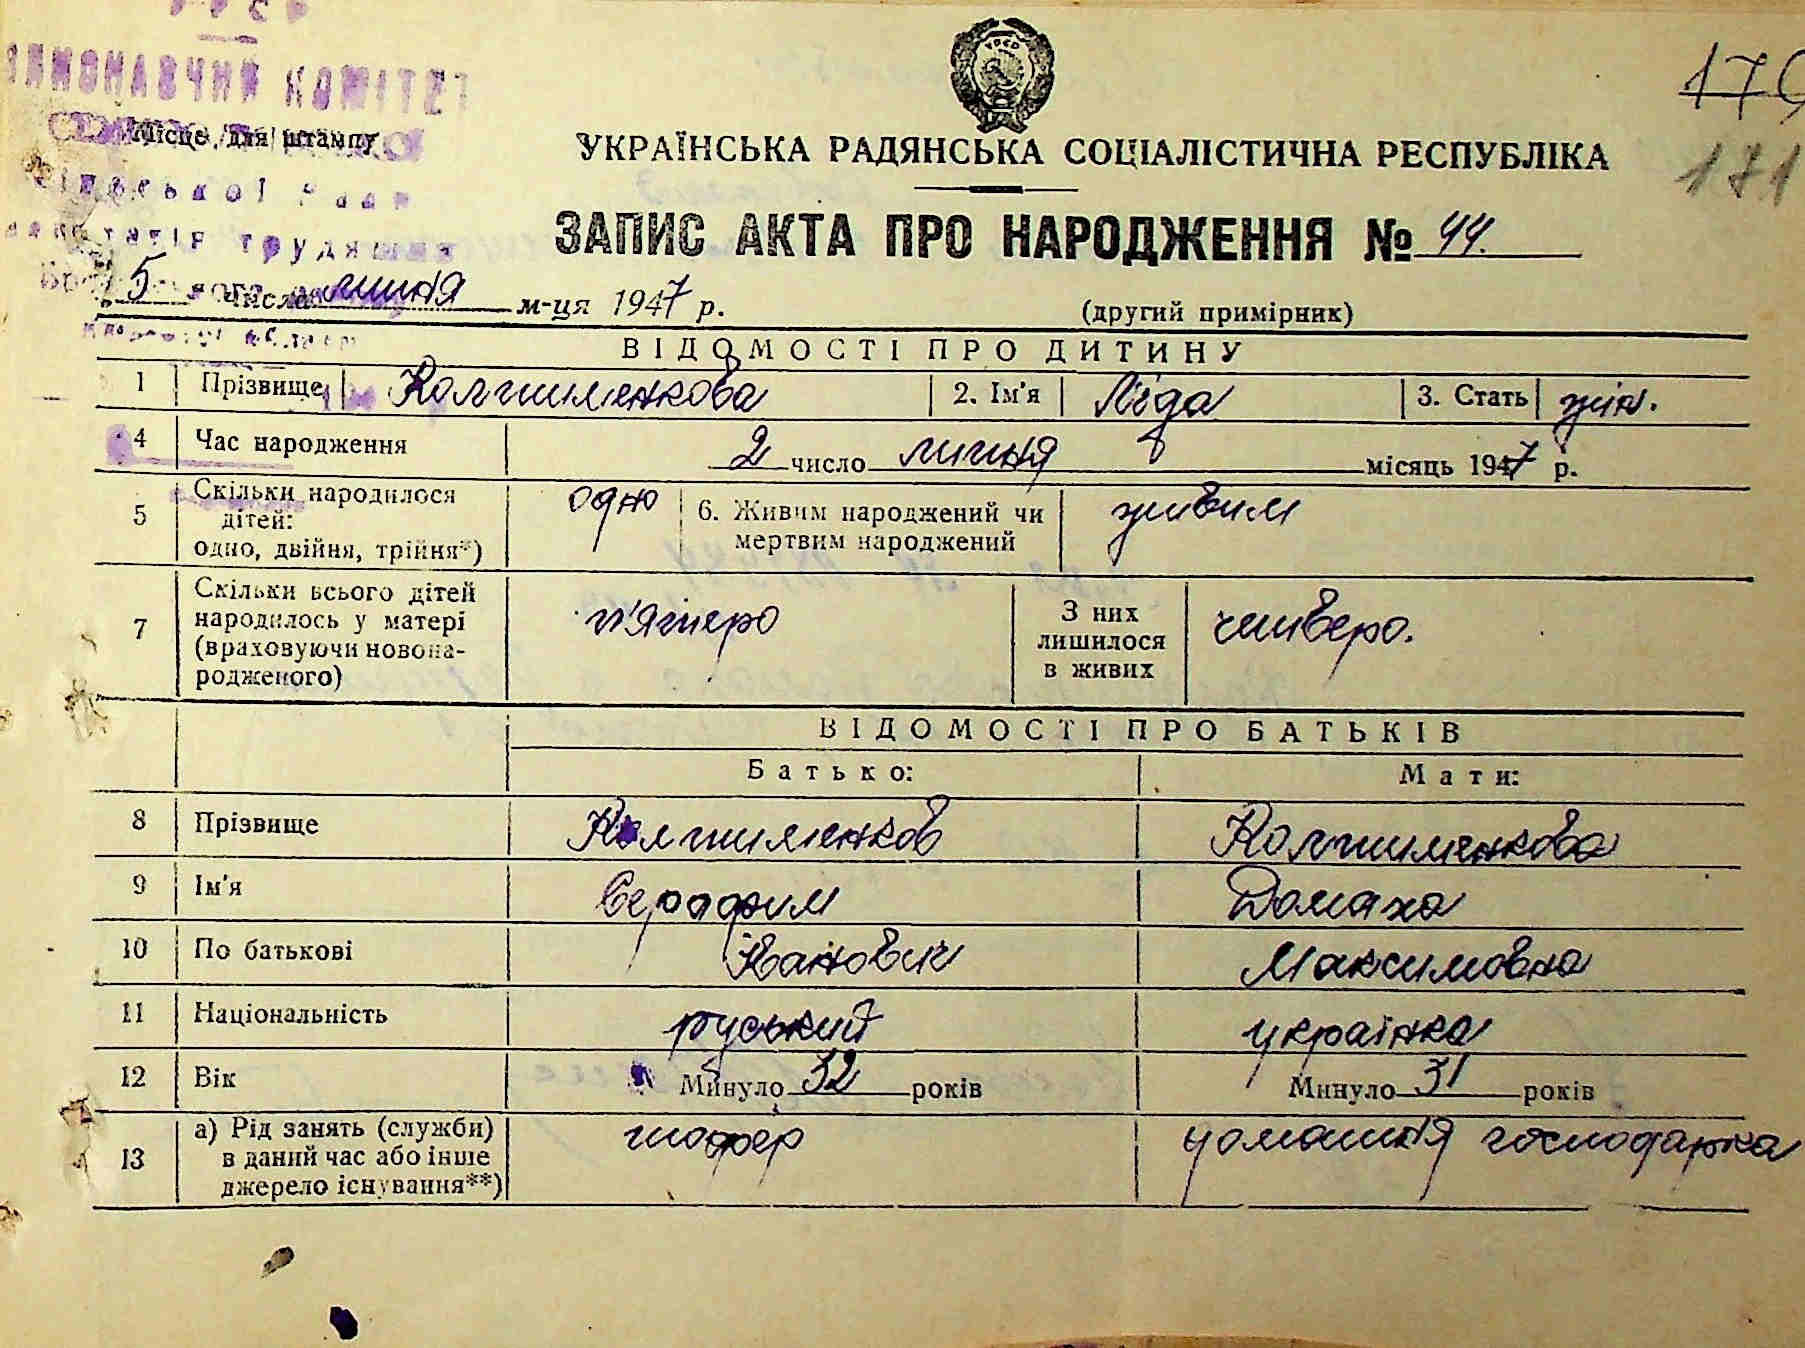 170
Місце для штампу
УКРАЇНСЬКА РАДЯНСЬКА СОЦІАЛІСТИЧНА РЕСПУБЛІКА
171
ЗАПИС АКТА ПРО НАРОДЖЕННЯ № 44.
5 числа липня м-ця 1947 р. (другий примірник)
ВІДОМОСТІ ПРО ДИТИНУ
1 Прізвище Колтименкова 2. Ім'я Ліда 3. Стать жін.
4 Час народження 2 число липня місяць 1947 р.
5 Скільки народилося дітей: одно, двійня, трійня*) одно 6. Живим народжений чи мертвим народжений живим
7 Скільки всього дітей народилось у матері (враховуючи новонародженого) п'ятеро З них лишилося в живих четверо.
ВІДОМОСТІ ПРО БАТЬКІВ
Батько: Мати:
8 Прізвище Колтименков Колтименкова
9 Ім'я Серафим Домаха
10 По батькові Іванович Максимовна
11 Національність руський українка
12 Вік Минуло 32 років Минуло 31 років
13 а) Рід занять (служби) в даний час або інше джерело існування**) шофер домашня господарка